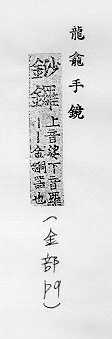 龍龕手鏡
䤬鑼上音娑下音羅
｜｜金銅器也
(金部 p9)